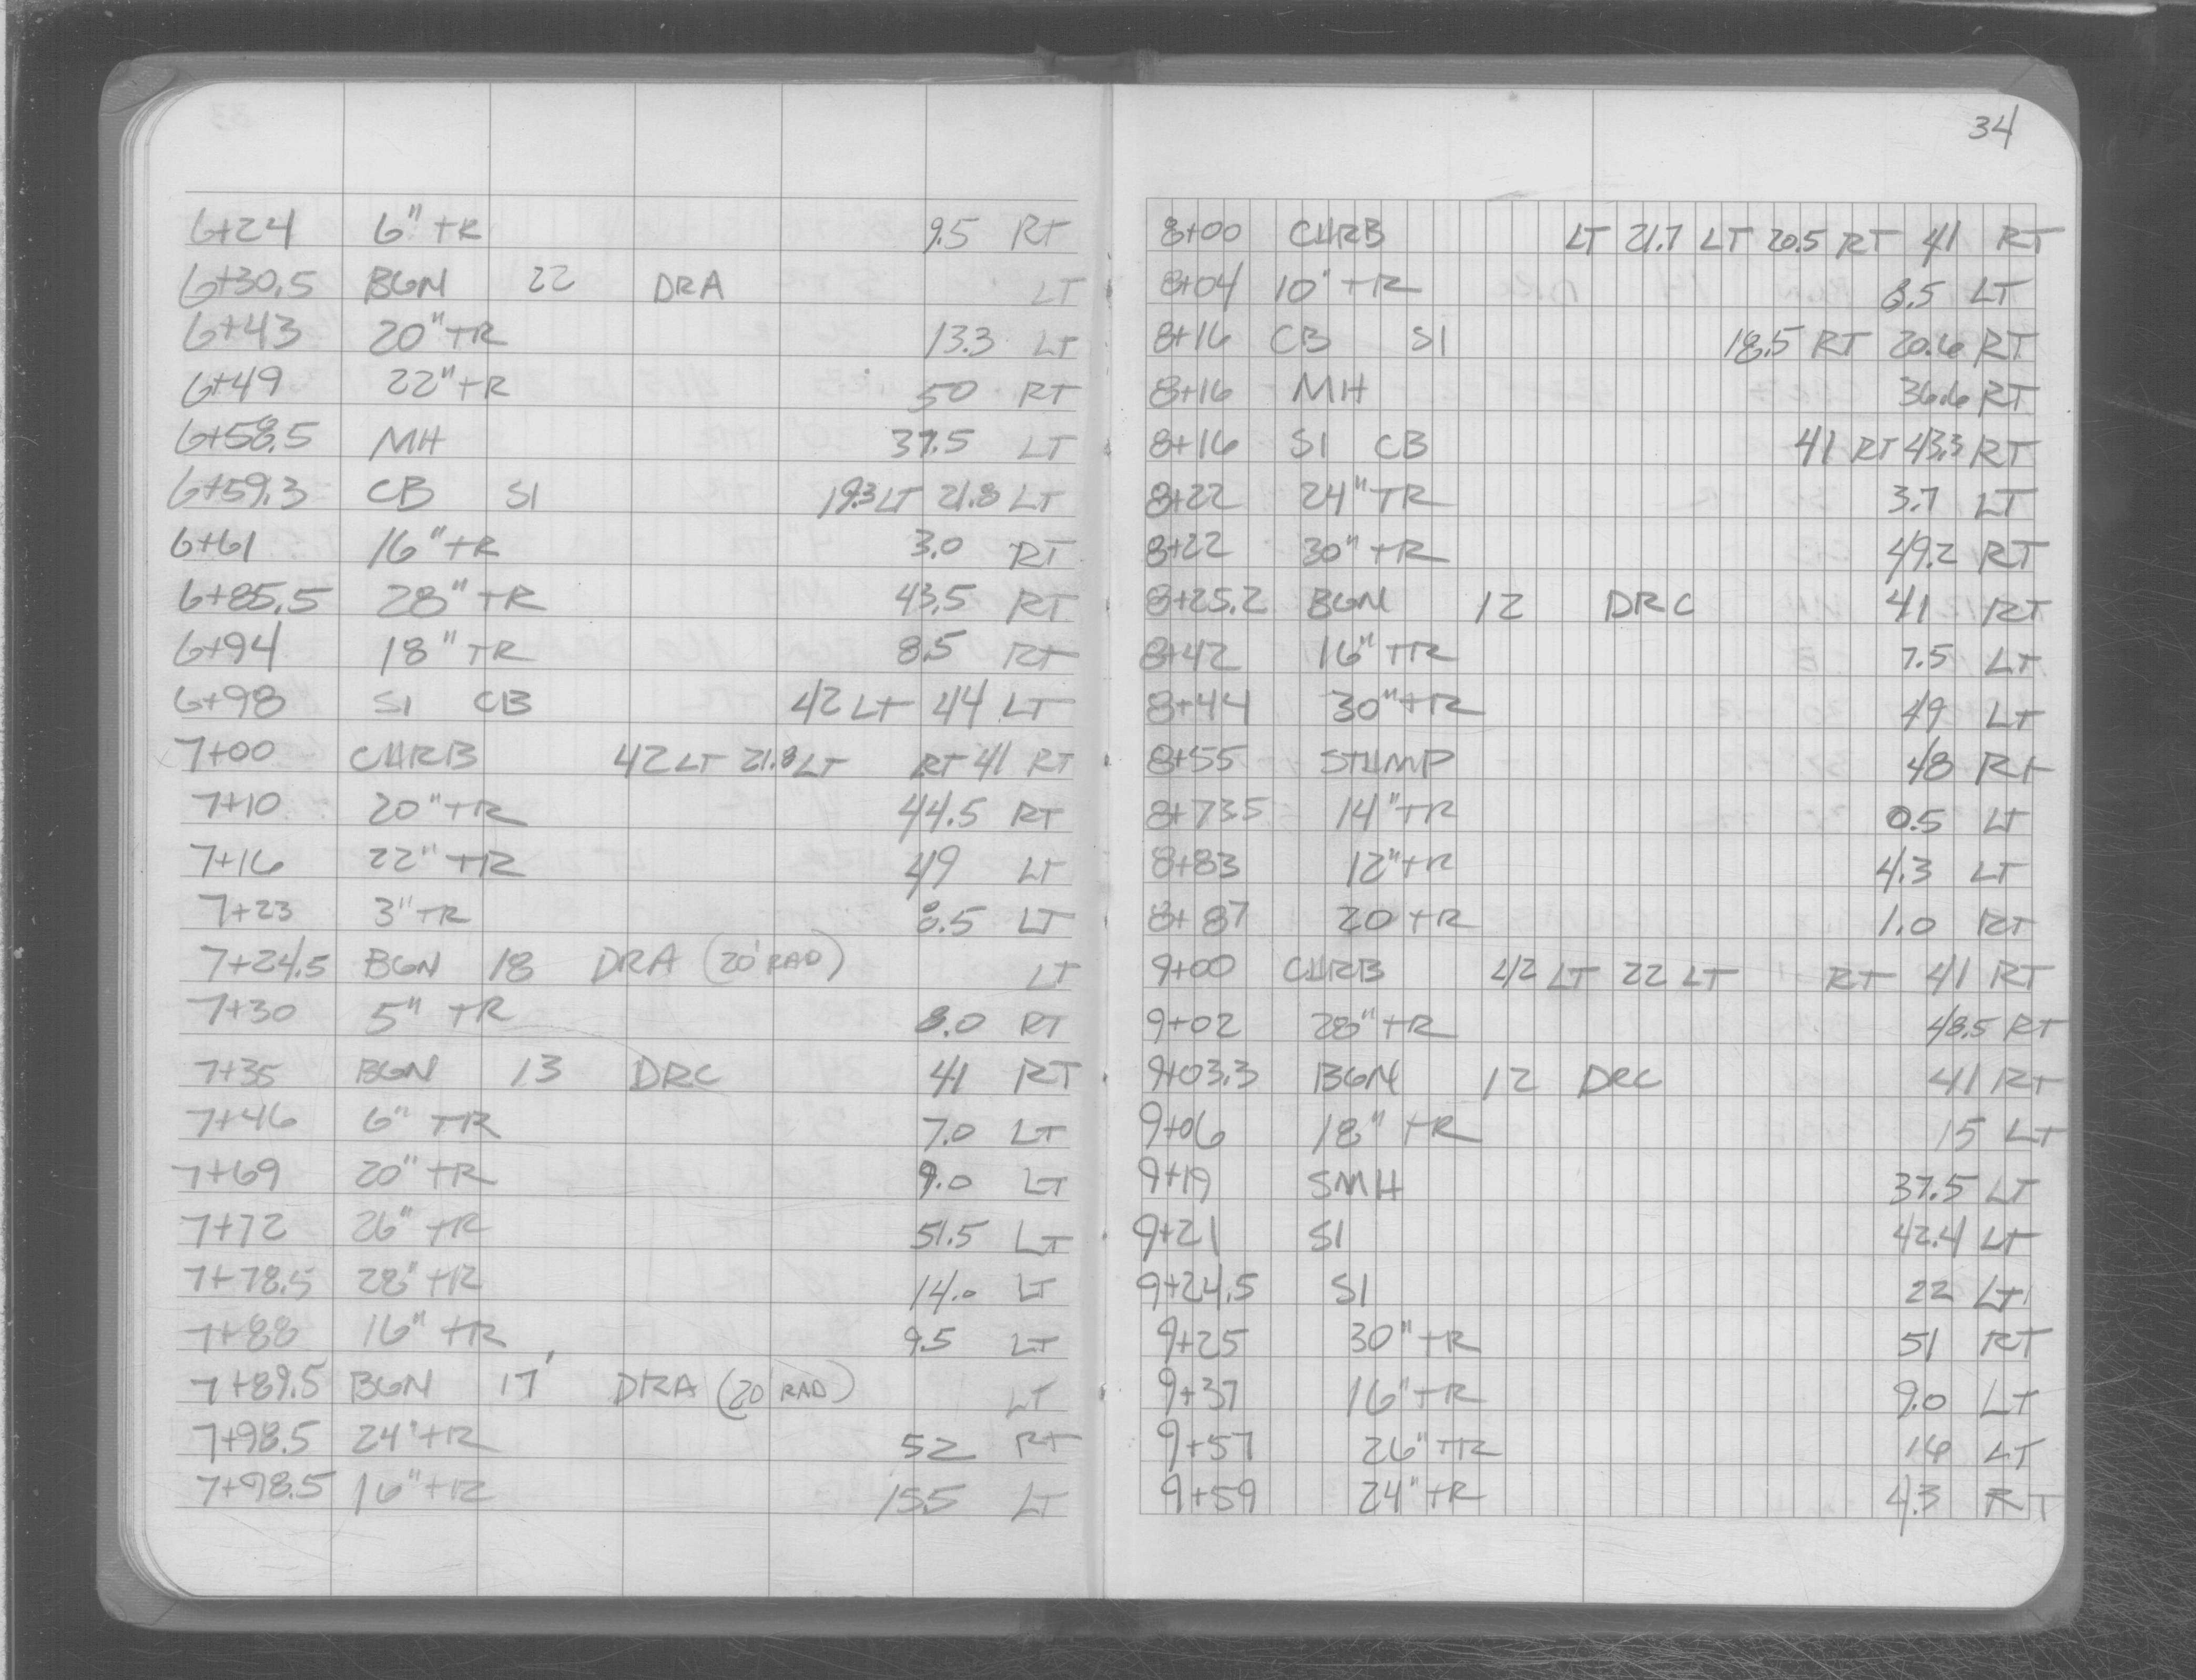 6+24 6" TR 9.5 RT
6+30.5 BGN 22 DRA LT
6+43 20" TR 13.3 LT
6+49 22" TR 50 RT
6+58.5 MH 37.5 LT
6+59.3 CB SI 19.3 LT 21.8 LT
6+61 16" TR 3.0 RT
6+85.5 28" TR 43.5 RT
6+94 18" TR 8.5 RT
6+98 SI CB 42 LT 44 LT
7+00 CURB 42 LT 21.8 LT RT 41 RT
7+10 20" TR 44.5 RT
7+16 22" TR 49 LT
7+23 3" TR 8.5 LT
7+24.5 BGN 18 DRA (20' RAD) LT
7+30 5" TR 8.0 RT
7+35 BGN 13 DRC 41 RT
7+46 6" TR 7.0 LT
7+69 20" TR 9.0 LT
7+72 26" TR 51.5 LT
7+78.5 28" TR 14.0 LT
7+88 16" TR 9.5 LT
7+89.5 BGN 17' DRA (20' RAD) LT
7+98.5 24" TR 52 RT
7+98.5 16" TR 15.5 LT
34
8+00 CURB LT 21.7 LT 20.5 RT 41 RT
8+04 10" TR 8.5 LT
8+16 CB SI 18.5 RT 20.6 RT
8+16 MH 36.6 RT
8+16 SI CB 41 RT 43.3 RT
8+22 24" TR 3.7 LT
8+22 30" TR 49.2 RT
8+25.2 BGN 12 DRC 41 RT
8+42 16" TR 7.5 LT
8+44 30" TR 49 LT
8+55 STUMP 48 RT
8+73.5 14" TR 0.5 LT
8+83 12" TR 4.3 LT
8+87 20 TR 1.0 RT
9+00 CURB 42 LT 22 LT RT 41 RT
9+02 28" TR 48.5 RT
9+03.3 BGN 12 DRC 41 RT
9+06 18" TR 15 LT
9+19 SMH 37.5 LT
9+21 SI 42.4 LT
9+24.5 SI 22 LT
9+25 30" TR 51 RT
9+37 16" TR 9.0 LT
9+57 26" TR LT
9+59 24" TR 4.3 RT